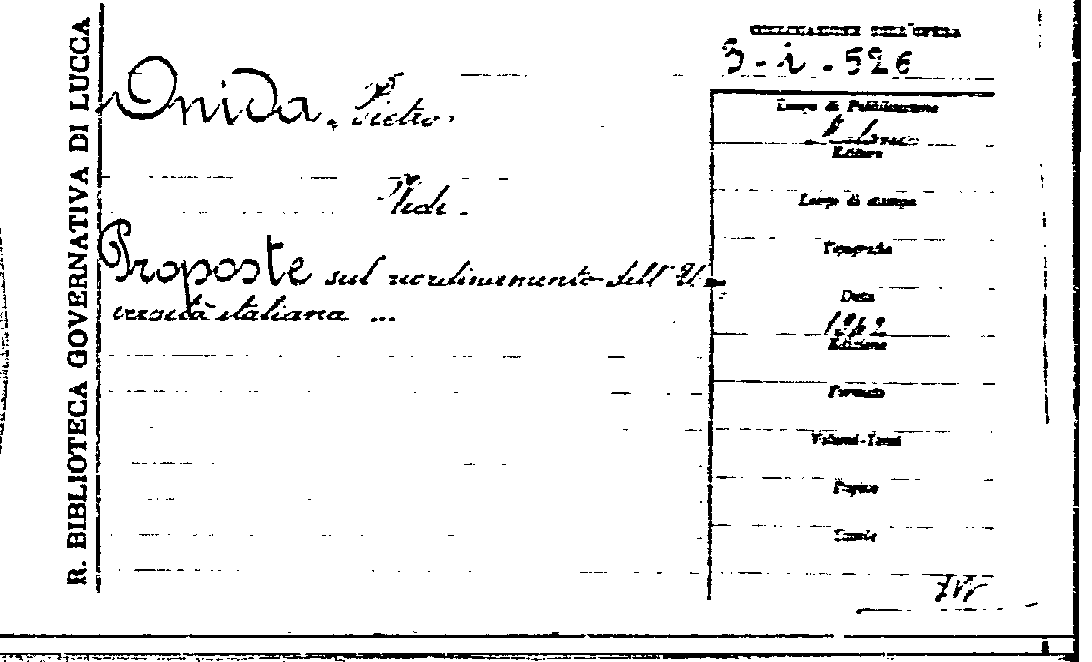 R. BIBLIOTECA GOVERNATIVA DI LUCCA
COLLOCAZIONE DELL'OPERA
3-i-526
Onida, Pietro.
Vedi.
Proposte sul riordinamento dell'Uni-
versità italiana ...
Luogo di Pubblicazione
Editore
Luogo di stampa
Tipografia
Data
1942
Edizione
Formato
Volumi-Tomi
Pagine
Tavole